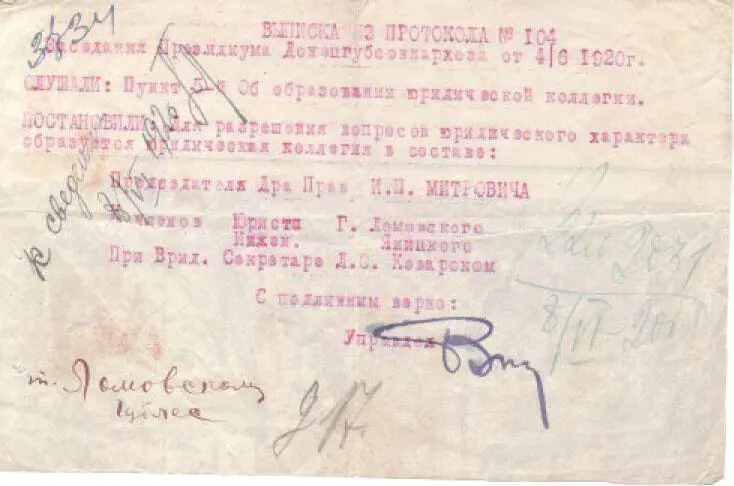 ВЫПИСКА ИЗ ПРОТОКОЛА № 104
Заседания Президиума Донецгубсовнархоза от 4/6 1920г.
СЛУШАЛИ: Пункт 5й Об образовании юридической коллегии.
ПОСТАНОВИЛИ: Для разрешения вопросов юридического характера
образуется юридическая коллегия в составе:
Председателя Дра Прав. И.П. МИТРОВИЧА
Членов Юриста Г. Ломовского
Инжен. Яницкого
При Врид. Секретаре Л.С. Коварском
С подлинным верно:
Управдел
к сведению
т. Ломовскому